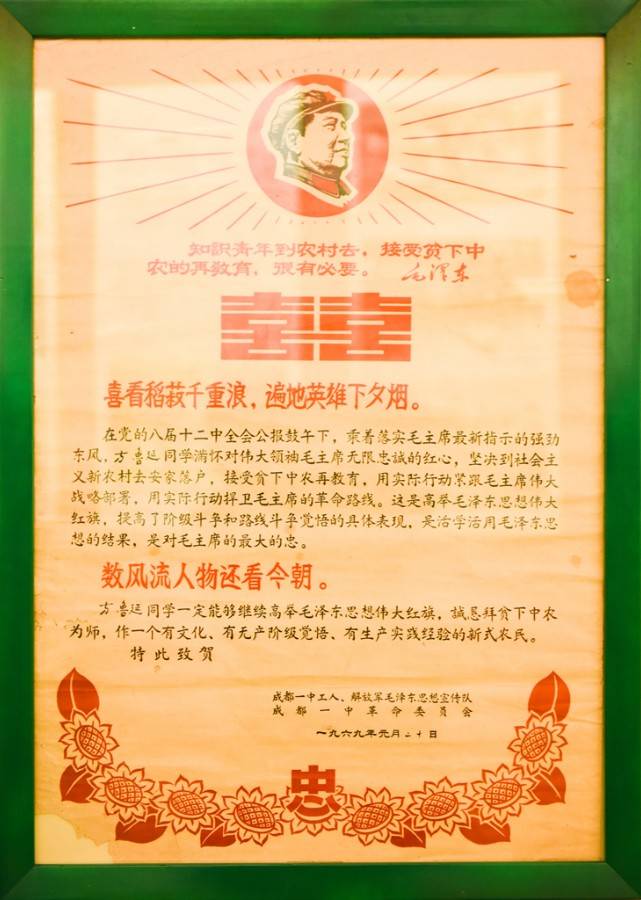 知識青年到农村去，接受贫下中
农的再教育，很有必要。 毛泽东
囍
喜看稻菽千重浪，遍地英雄下夕烟。
在党的八届十二中全会公报鼓午下，乘着落实毛主席最新指示的强劲
东风，方鲁延同学满怀对伟大领袖毛主席无限忠誠的红心，坚决到社会主
义新农村去安家落户，接受贫下中农再教育，用实际行动紧跟毛主席伟大
战略部署，用实际行动捍卫毛主席的革命路线。这是高举毛泽东思想伟大
红旗，提高了阶级斗争和路线斗争觉悟的具体表现，是活学活用毛泽东思
想的结果，是对毛主席的最大的忠。
数风流人物还看今朝。
方鲁延同学一定能够继续高举毛泽东思想伟大红旗，誠恳拜贫下中农
为师，作一个有文化、有无产阶级觉悟、有生产实践经验的新式农民。
特此致賀
成都一中工人、解放軍毛泽东思想宣传队
成都一中革命委员会
一九六九年元月二十日
忠